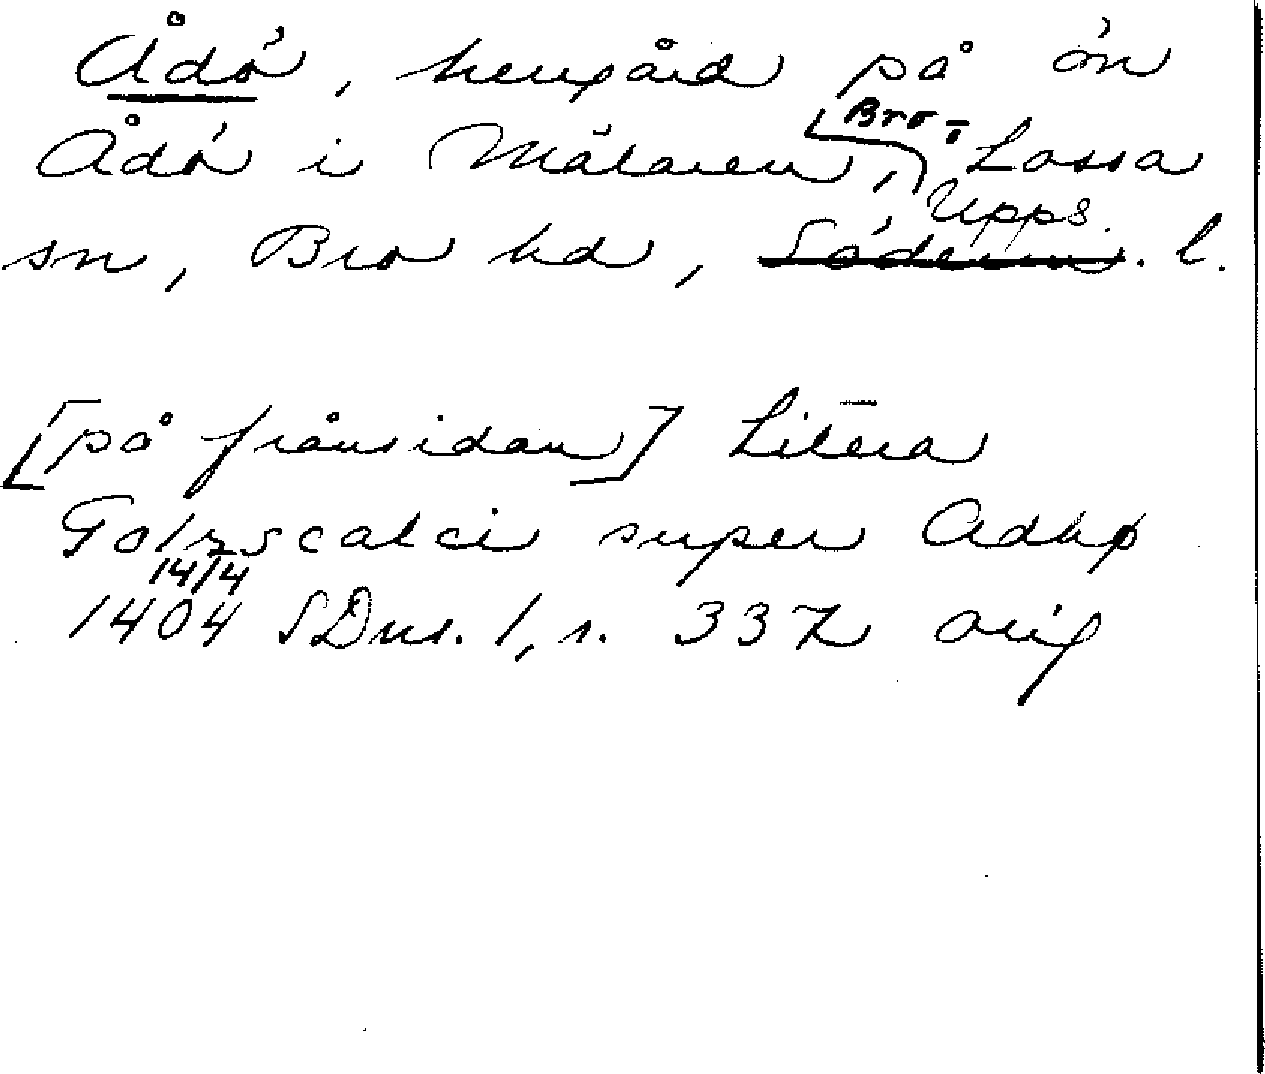 Ådö, herrgård på ön
Bro-
Ådö i Mälaren, Lossa
Upps.
sn, Bro hd, Söderm. l.
[på frånsidan] Litera
Golzscalci super Adhø
14/4
1404 SDns. 1, s. 337 orig